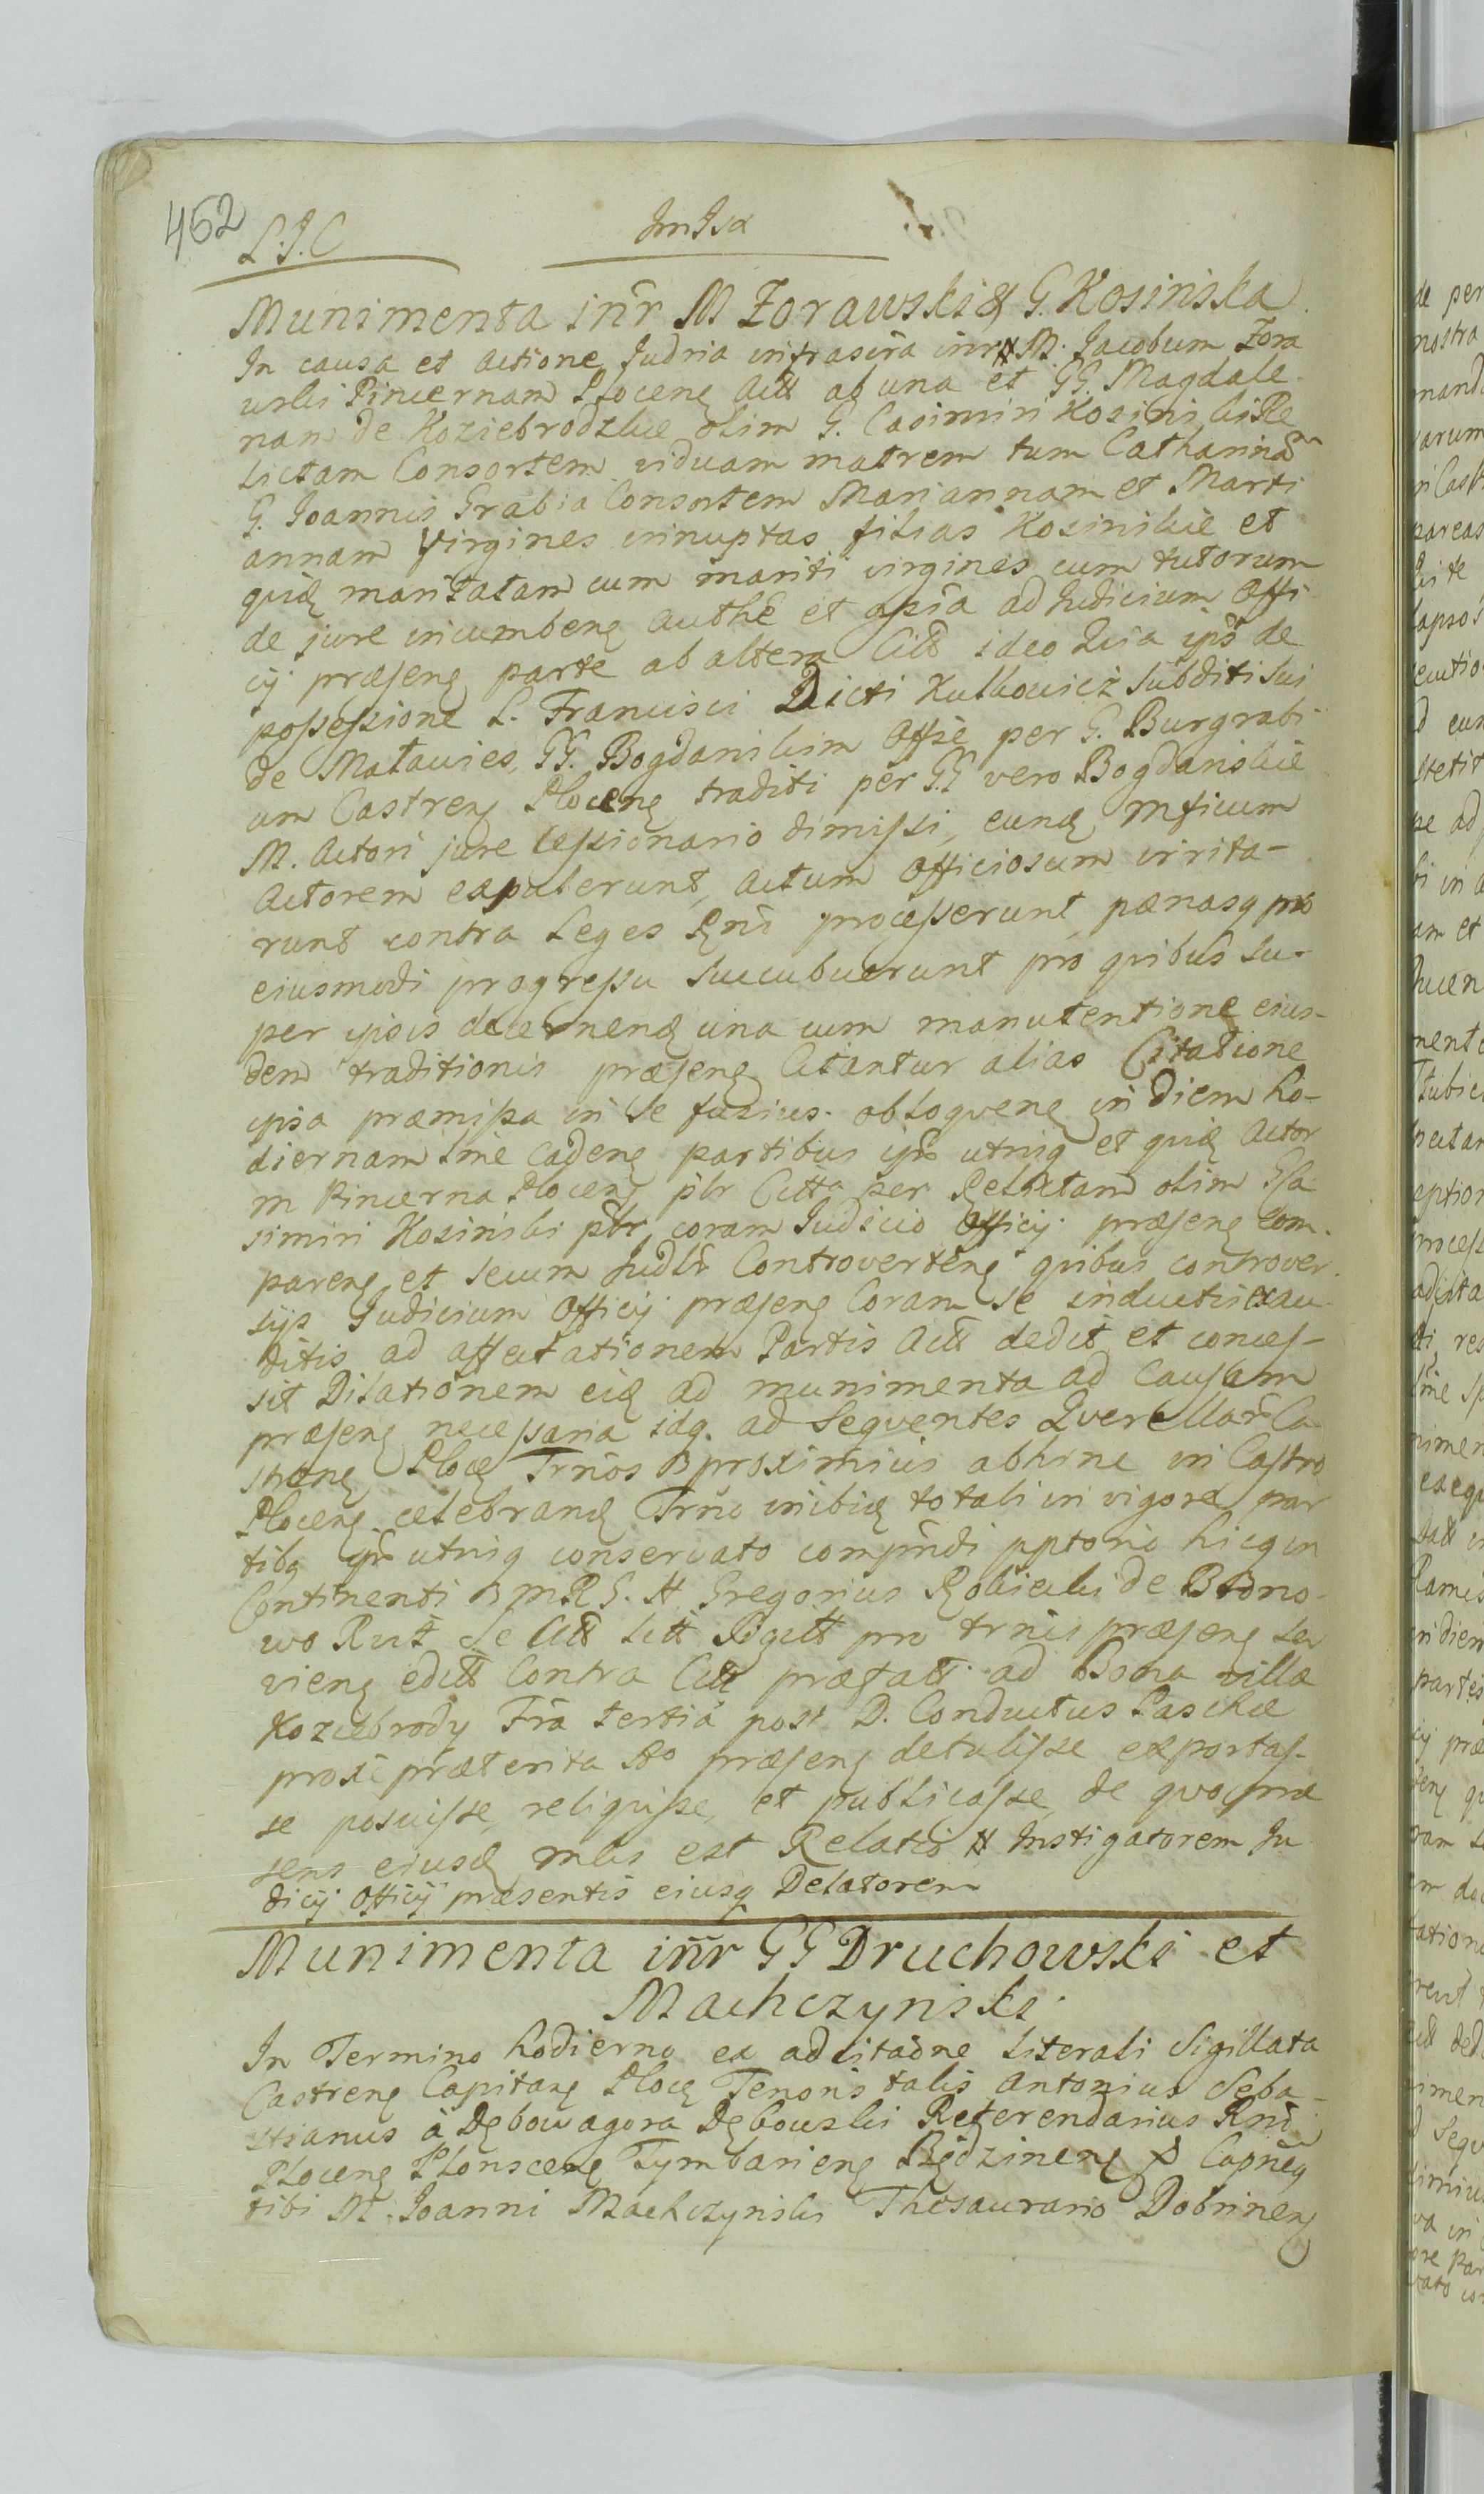 462
L.J.C
Munimenta inr̃ M Zorawski & G. Kosinska
In causa et actione Judria infrascra inr M. Jacobum Zora
wski Pincernam Plocen Actt ab una et GG. Magdale
nam de Koziebrodzkie olim G. Casimiri Kosinski Re
lictam Consortem viduam matrem tum Catharinã
G. Joannis Grabia Consortem Mariannam et Marti
annam Virgines innuptas filias Kosinskie et
quid maritatam cum mariti virgines cum tutorum
de jure incumben authẽ et assia ad Judicium Offi
cij præsen parte ab altera Citt ideo Quia ips de
possessione L. Francisci Dicti Kulkowicz Subditi sui
de Matawies, GG. Bogdanskim Offse per G. Burgrabi
um Castren Plocen traditi per GG vero Bogdanskie
M. Actori jure cessionario dimissi, eund Mficum
Actorem expulerunt, actum Officiosum irrita-
runt contra Leges Rni processerunt pænasq pro
eiusmodi progressu succubuerunt pro quibus su-
per ipsis decernend una cum manutentione eius-
dem traditionis præsen Citantur alias Citatione
ipsa præmissa in se fusius obloquene in diem ho-
diernam sme caden partibus ips utriq et quid Actor
M Pincerna Plocen pltr Citta per Relictam olim G Ca
simiri Kosinski pltr coram Judicio Officij præsen com-
paren, et secum Judlr Controverten quibus controver
sijs Judicium Officij præsen Coram se inductis exau
ditis ad affectationem Partis Actt dedit et conces-
sit Dilationem eid ad munimenta ad Causam
præsen necessaria idq. ad Sequentes Querellar Ca
stren Ploc Trnos proximius abhinc in Castro
Plocen celebrand Trño inibid totali in vigore par
tibq ips utriq conservato comprndi pptorio hicq in
Continenti MRG. N Gregorius Robiecki de Brono
wo Rut se Citt Litt Sigillt pro trnis præsen ser
vien editt Contra Citt præfatt ad Bona villa
Koziebrody Fra tertia post D. Conductus Paschæ
proxe præterita Ao præsen detulisse exportas-
se posuisse, reliquisse, et publicasse, de quo præ
sens eiusd mlis est Relatio N Instigatorem Ju
dicij Officij præsentis eiusq Delatorem
Munimenta inr̃r GG Druchowski et
Machczynski
In Termino hodierno ex adcitaõne literali Sigillata
Castren Capitan Ploc Tenoris talis Antonius Seba-
stianus à Dębowagora Dębowski Referendarius Rni
Plocen Plonscen Tymbarien Będzinen & Capneq
tibi M. Joanni Machczynski Thesaurario Dobrinen